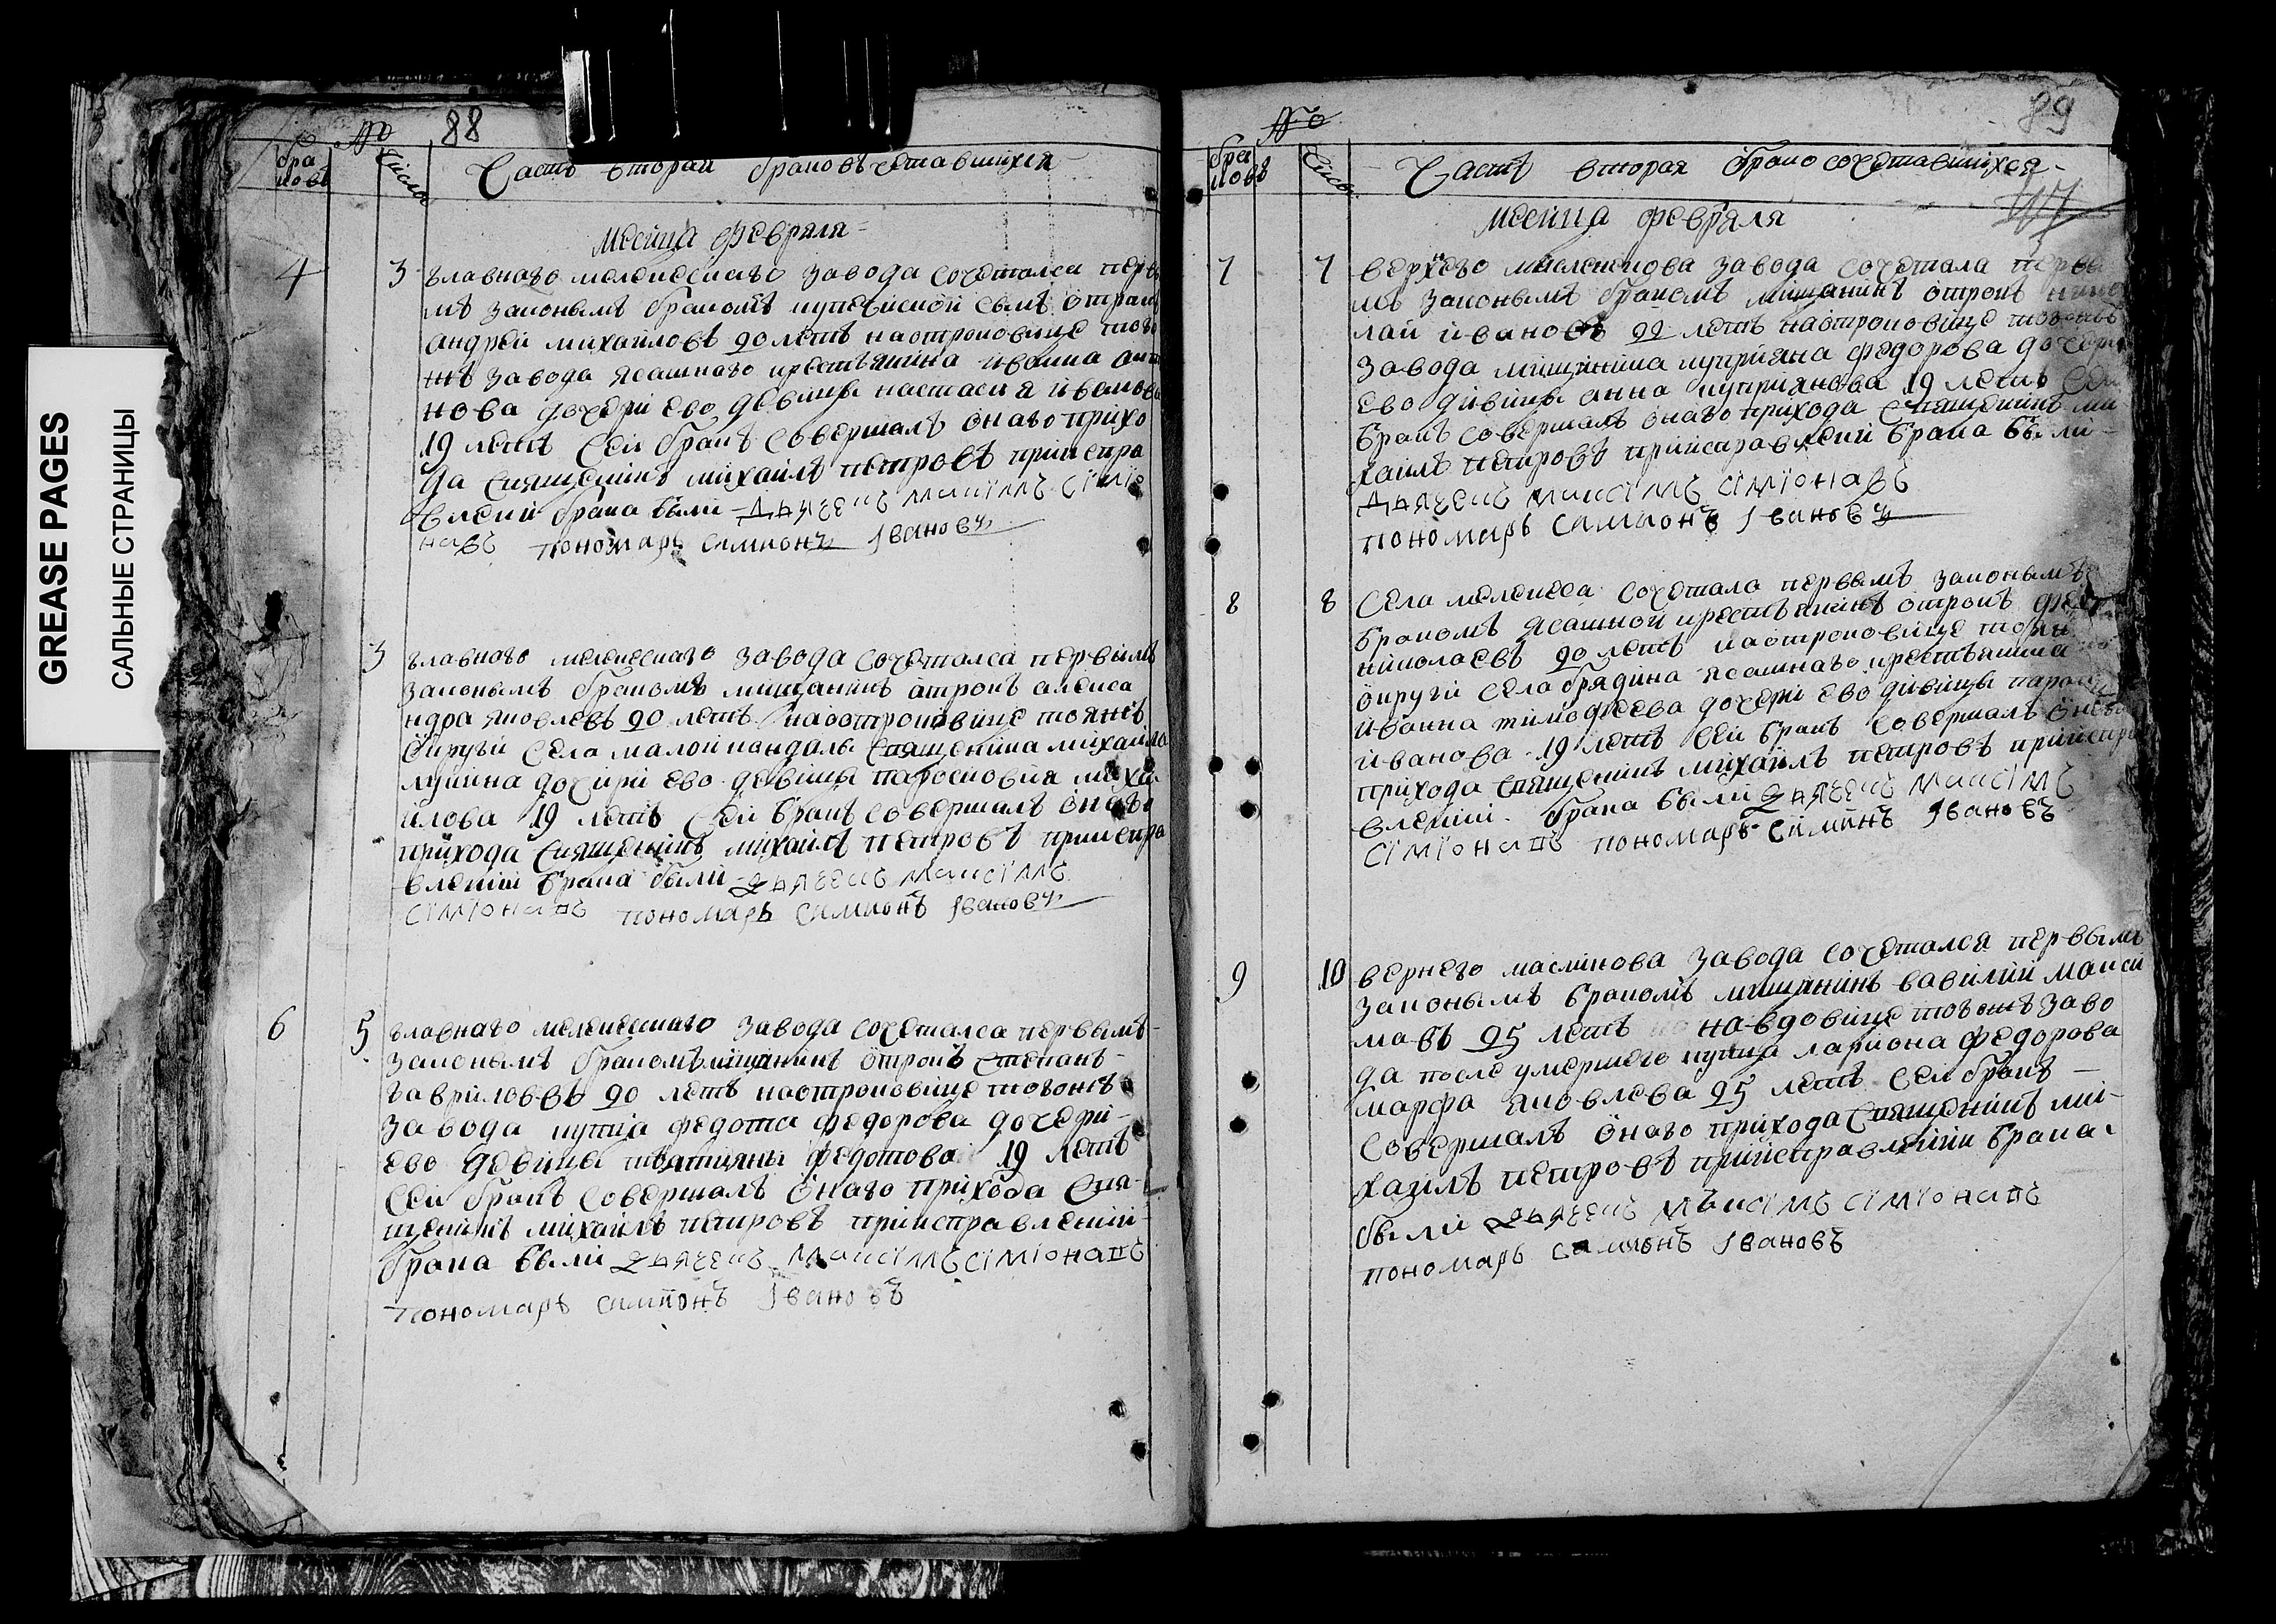 GREASE PAGES
САЛЬНЫЕ СТРАНИЦЫ
№ 88
бра ковъ Число Часть вторая браковъчетавшихся
месица февраля
4 3 главнаго мелекескаго завода сочетался перв
мъ законымъ бракомъ купеческой сынъ отрак
андрей михайловъ 20 летъ наотроковице того
жъ завода ясашнаго крестьянина иванна
нова дочери ево девицы настасия иванов
19 летъ сей бракъ совершалъ онаго прихо
да священникъ михаилъ петровъ приисправ
влении брака были Дьячекъ Максiмъ Сiмiо
навъ пономарь симионъ Iвановъ
3 главного мелекескаго завода сочетался первымъ
законымъ бракомъ мищанинъ отрокъ алекса
ндра яковлевъ 20 летъ наотроковице тоянъ
округи села малой кандалы священника михаила
лукина дочири ево девицы парасковия миха
илова 19 летъ сей бракъ совершалъ онаго
прихода священникъ михаилъ петровъ приисправ
влении брака были Дьячекъ Максiмъ
Сiмiонавъ пономарь симионъ Iвановъ
6 5 главнаго мелекескаго завода сочетался первымъ
законымъ бракомъ мищанинъ отрокъ степанъ
гавриловвъ 20 летъ наотроковице тогожъ
завода купца федота федорова дочери
ево девицы татияны федотова 19 летъ
сей бракъ совершалъ онаго прихода свя
щенникъ михаилъ петровъ приисправлении
брака были Дьячекъ Максiмъ Сiмiонавъ
пономарь симионъ Iвановъ
№ 89
бра ковъ Число Часть вторая брако сочетавшихся
месица февраля
7 7 верхнего завода сочетала первы
мъ законымъ бракомъ мищанинъ отрокъ нико
лай ивановъ 22 летъ наотроковице тогожъ
завода мищанина куприяна федорова дочери
ево дивицы анна куприянова 19 летъ сей
бракъ совершалъ онаго прихода священникъ ми
хаилъ петровъ приисправлении брака были
Дьячекъ Максiмъ Сiмiонавъ
пономарь симионъ Iвановъ
8 8 села мелекеса сочетала первымъ законымъ
бракомъ ясашной крестьянинъ отрокъ
николаевъ 20 летъ наотроковице тоянъ
округи села брядина ясашнаго крестьянина
иванна тимофеева дочери ево дивицы параск
иванова 19 летъ сей бракъ совершалъ онаго
прихода священникъ михаилъ петровъ приисправ
влении брака были Дьячекъ Максiмъ
Сiмiонавъ пономарь симионъ Iвановъ
9 10 вернего маслинова завода сочетался первымъ
законымъ бракомъ мищянинъ вавилий макси
мавъ 25 летъ навдовице тогожъ заво
да после умершего купца лариона федорова
марфа яковлева 25 летъ сей бракъ
совершалъ онаго прихода священникъ ми
хаилъ петровъ приисправлении брака
были Дьячекъ Максiмъ Сiмiонавъ
пономарь симионъ Iвановъ